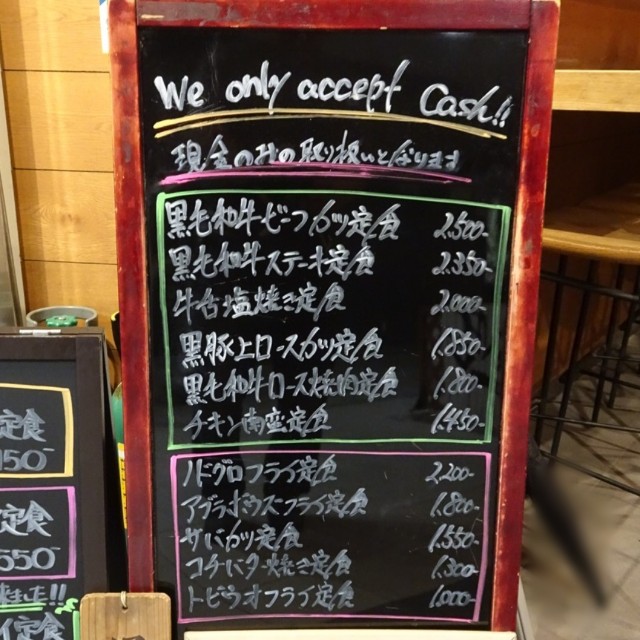 We only accept Cash!!
現金のみの取り扱いとなります
黒毛和牛ビーフカツ定食 2.500-
黒毛和牛ステーキ定食 2.350-
牛舌塩焼き定食 2.000-
黒豚上ロースカツ定食 1.850-
黒毛和牛ロース焼肉定食 1.800-
チキン南蛮定食 1.450-
ノドグロフライ定食 2.200-
アブラボウズフライ定食 1.800-
サバカツ定食 1.550-
コチバタ焼き定食 1.300-
トビウオフライ定食 1.000-
定食
150-
定食
550-
定食